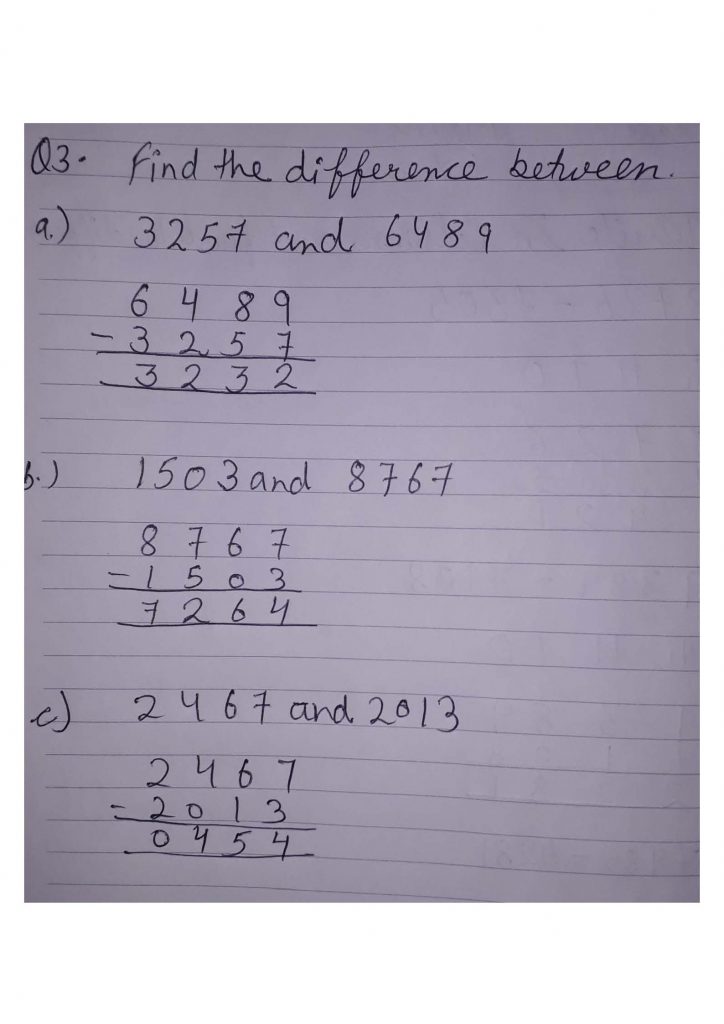 Q3. Find the difference between.
a.) 3257 and 6489
6 4 8 9
- 3 2 5 7
3 2 3 2
b.) 1503 and 8767
8 7 6 7
- 1 5 0 3
7 2 6 4
c) 2467 and 2013
2 4 6 7
- 2 0 1 3
0 4 5 4